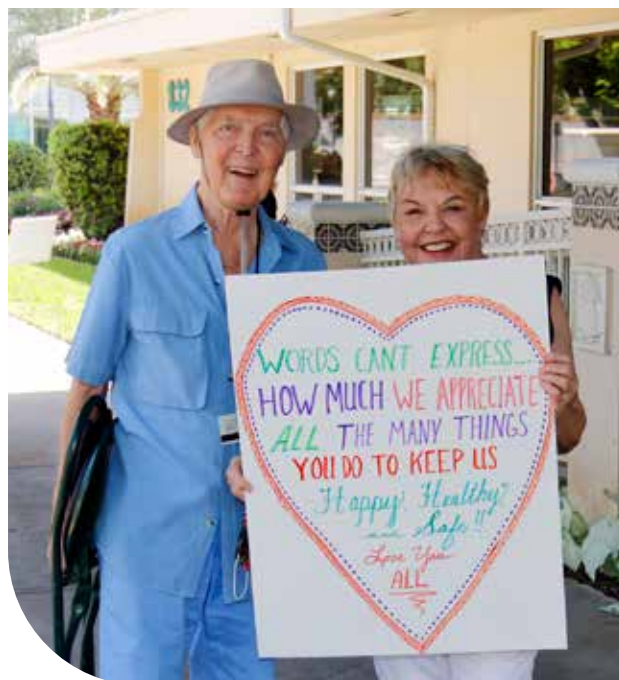 832
WORDS CAN'T EXPRESS...
HOW MUCH WE APPRECIATE
ALL THE MANY THINGS
YOU DO TO KEEP US
Happy! Healthy!
and Safe!!
Love You
ALL